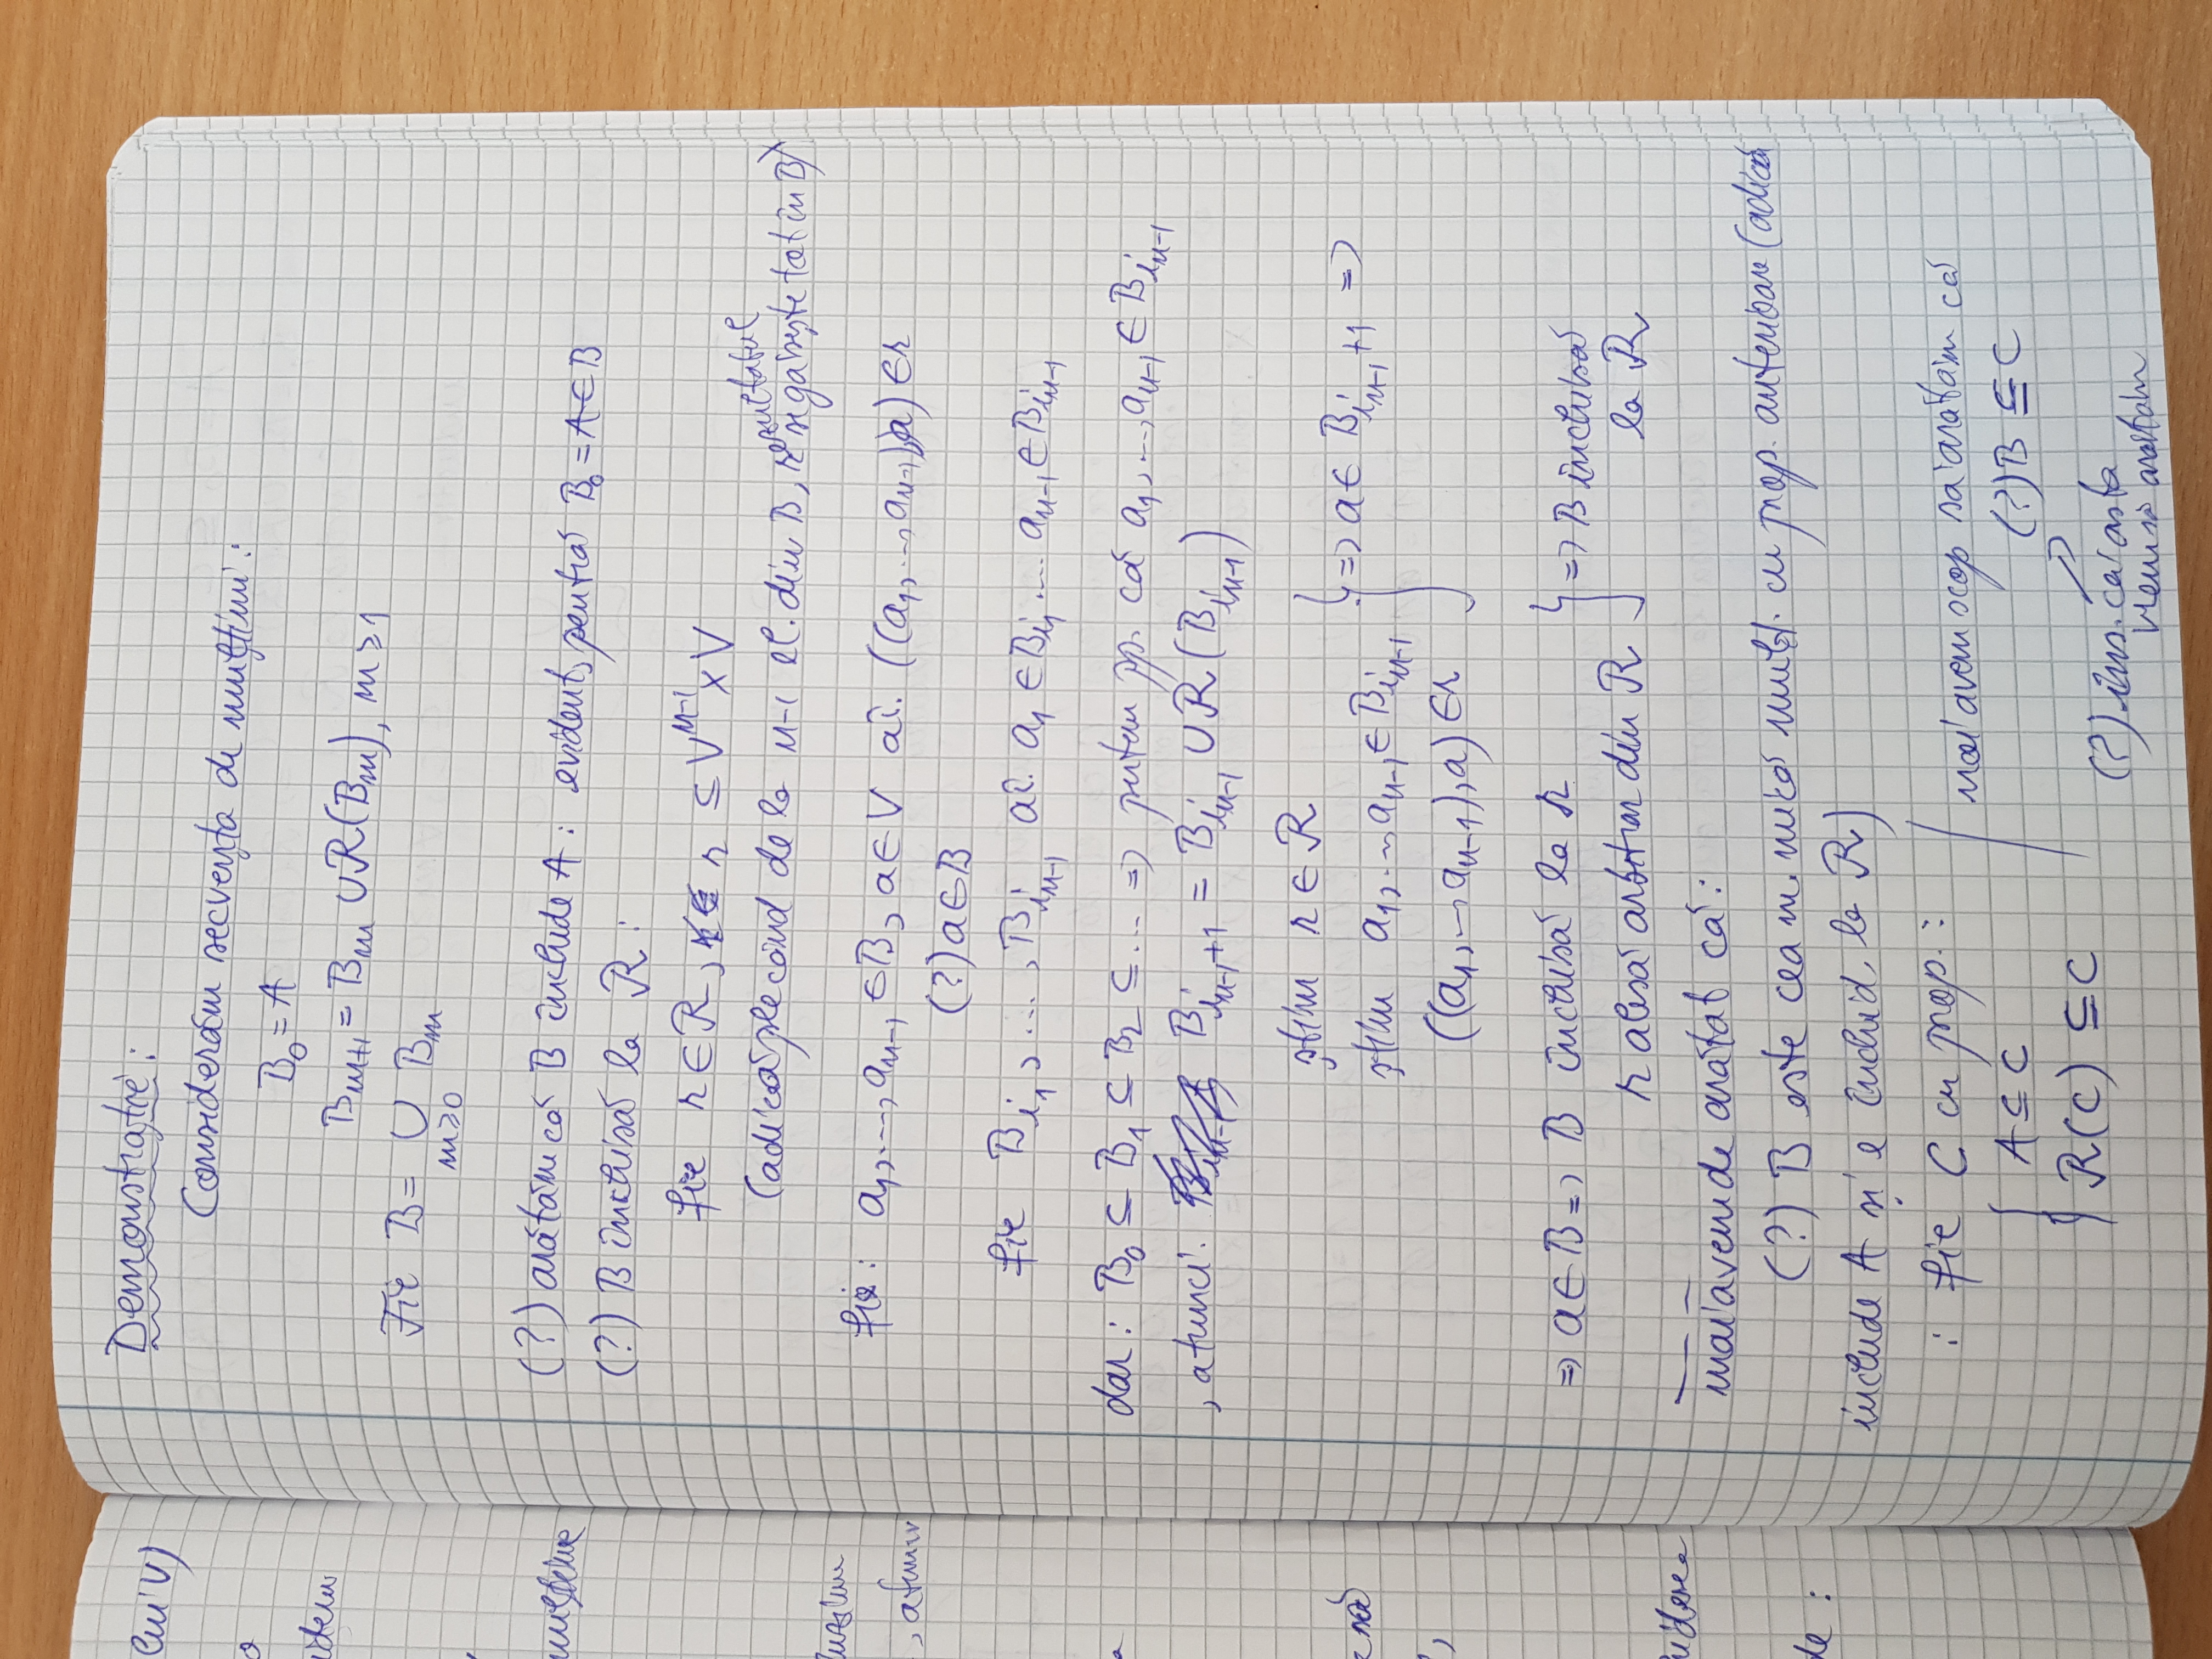 Demonstrație:
Considerăm secvența de mulțimi:
B₀ = A
Bₘ₊₁ = Bₘ ∪ R(Bₘ), m ≥ 1
Fie B = ∪ Bₘ
m≥0
(?) arătăm că B include A: evident, pentră B₀ = A ∈ B
(?) B închisă la R:
fie r ∈ R, r ⊆ Vⁿ⁻¹ × V
(adică plecând de la n-1 el. din B, rezultatul se găsește tot în B)
fie: a₁, ..., aₙ₋₁ ∈ B, a ∈ V aî. ((a₁, ..., aₙ₋₁), a) ∈ r
(?) a ∈ B
fie B_{i₁}, ..., B_{iₙ₋₁} aî. a₁ ∈ B_{i₁} .... aₙ₋₁ ∈ B_{iₙ₋₁}
dar: B₀ ⊆ B₁ ⊆ B₂ ⊆ ... => putem pp. că a₁, ..., aₙ₋₁ ∈ B_{iₙ₋₁}
, atunci. B_{iₙ₋₁+1} = B_{iₙ₋₁} ∪ R(B_{iₙ₋₁})
știm r ∈ R
știm a₁, ..., aₙ₋₁ ∈ B_{iₙ₋₁} } => a ∈ B_{iₙ₋₁+1} =>
((a₁, ..., aₙ₋₁), a) ∈ r
=> a ∈ B => B închisă la r
r alesă arbitrar din R } => B închisă la R
mai avem de arătat că:
(?) B este cea m. mică mulț. cu prop. anterioare (adică
include A și e închid. la R)
: fie C cu prop.:
{ A ⊆ C
R(C) ⊆ C
mai avem scop să arătăm că
(?) B ⊆ C
(?) ins. că asta
vrem să arătăm
lui V)
mulțime
, atunci
de: